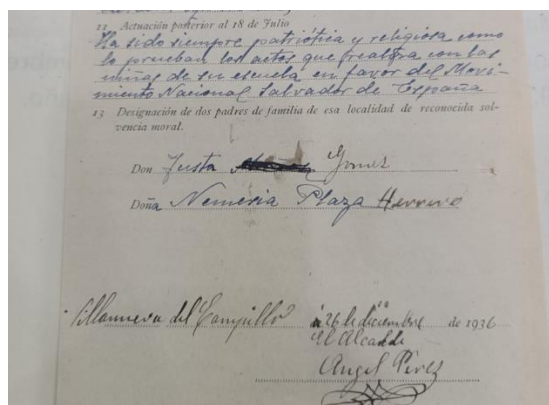 11 Actuación posterior al 18 de Julio
Ha sido siempre patriótica y religiosa como
lo prueban los actos que realiza con las
niñas de su escuela en favor del Movi-
miento Nacional Salvador de España
13 Designación de dos padres de familia de esa localidad de reconocida sol-
vencia moral.
Don Justa Gomez
Doña Nemeria Plaza Herrero
Villanueva del Campillo a 26 de diciembre de 1936
El Alcalde
Angel Pérez